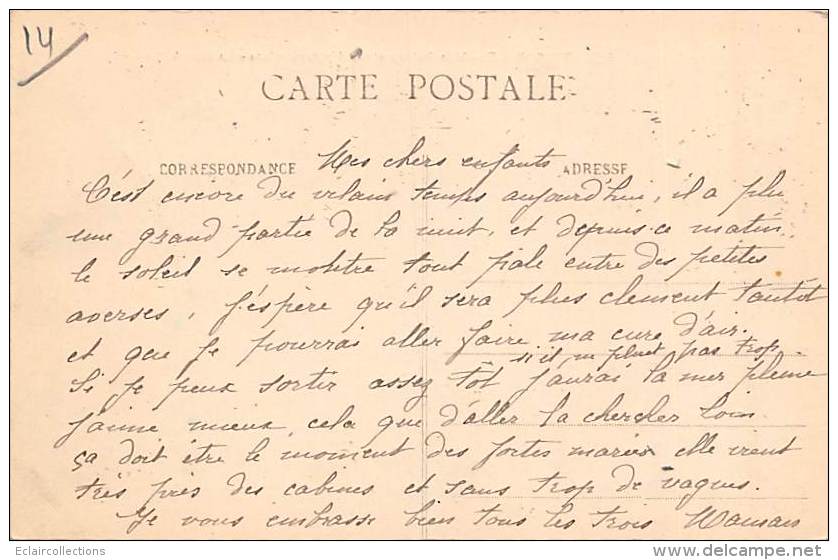 14
CARTE POSTALE
CORRESPONDANCE Mes chers enfants ADRESSE
C'est encore du vilain temps aujourd'hui, il a plu
une grand partie de la nuit, et depuis ce matin,
le soleil se montre tout pale entre des petites
averses, j'espère qu'il sera plus clement tantôt
et que je pourrai aller faire ma cure d'air.
si il ne pleut pas trop.
Si je peux sortir assez tôt j'aurai la mer pleine
j'aime mieux cela que d'aller la chercher loin
ça doit être le moment des fortes marées elle vient
très près des cabines et sans trop de vagues.
Je vous embrasse bien tous les trois Maman
Eclaircollections
©delcampe.net